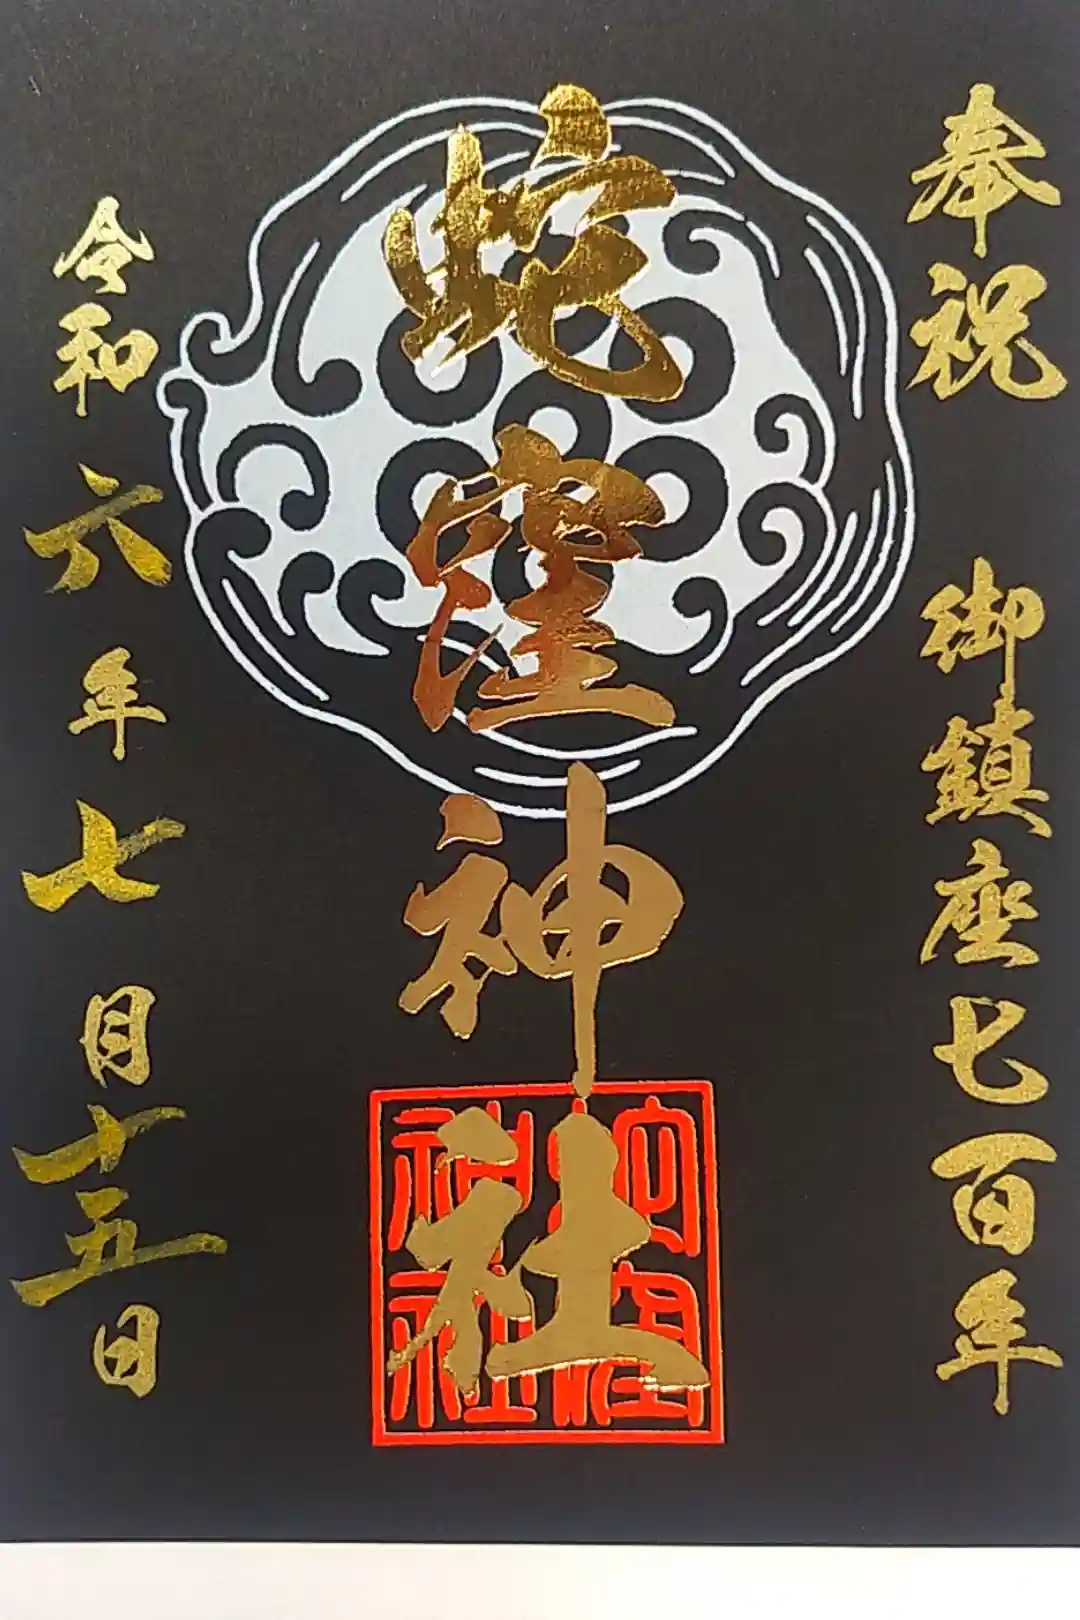 奉祝 御鎮座七百年
蛇窪神社
蛇窪
神社
令和六年七月十五日